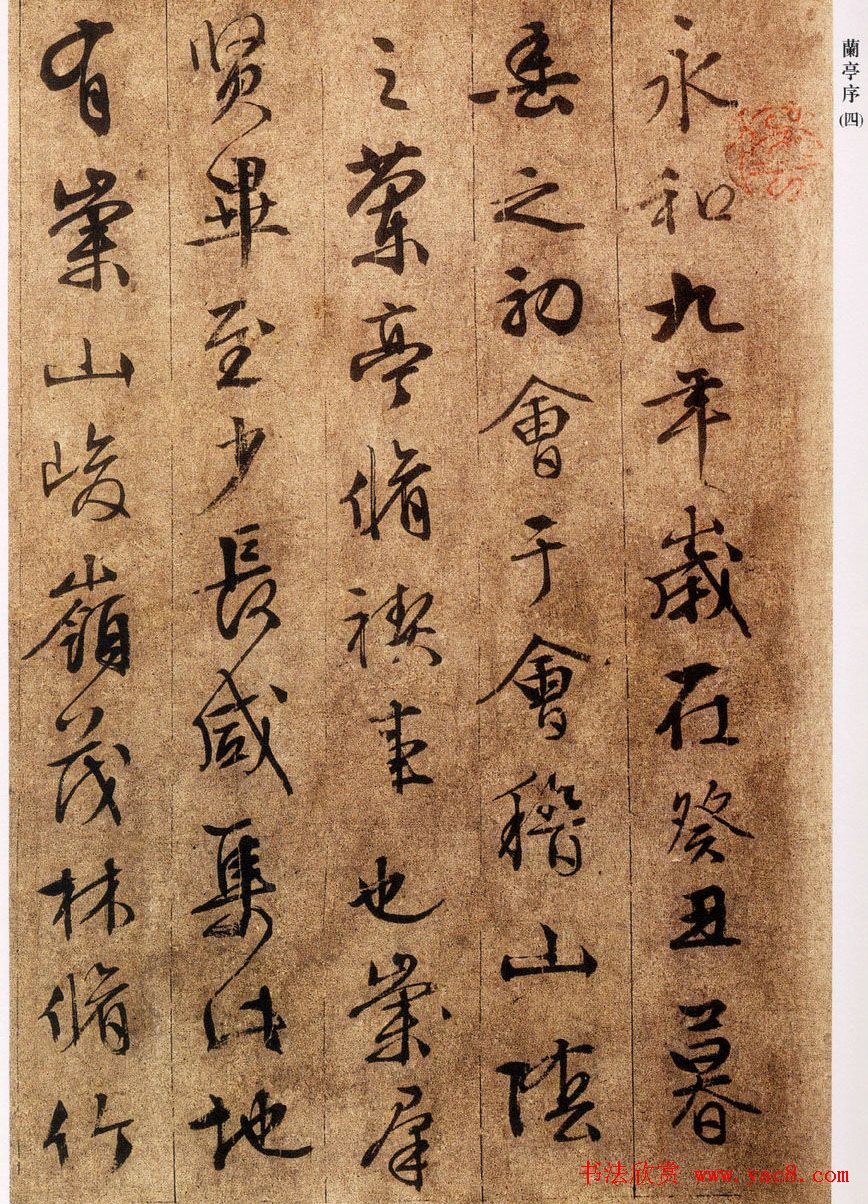 蘭亭序(四)
永和九年歲在癸丑暮
春之初會于會稽山陰
之蘭亭脩禊事也崇羣
賢畢至少長咸集此地
有崇山峻嶺茂林脩竹
书法欣赏 www.yac8.com